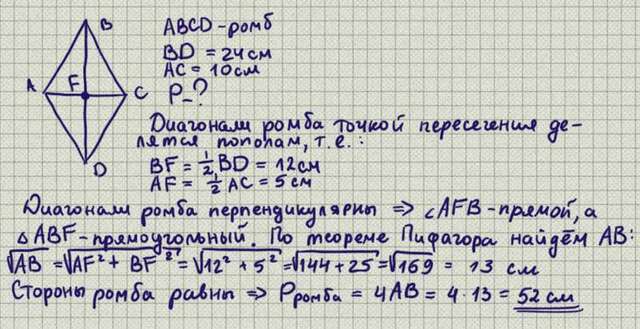 B
ABCD-ромб
BD = 24см
AC = 10см
A F C
P-?
D
Диагонали ромба точкой пересегения де-
лятся пополам, т.е.:
BF = 1/2 BD = 12см
AF = 1/2 AC = 5см
Диагонали ромба перпендикулярны => ∠AFB-прямой, а
△ABF-прямоугольный. По теореме Пифагора найдём AB:
√AB = √AF² + BF² = √12² + 5² = √144+25 = √169 = 13 см
Стороны ромба равны => Pромба = 4AB = 4·13 = 52 см